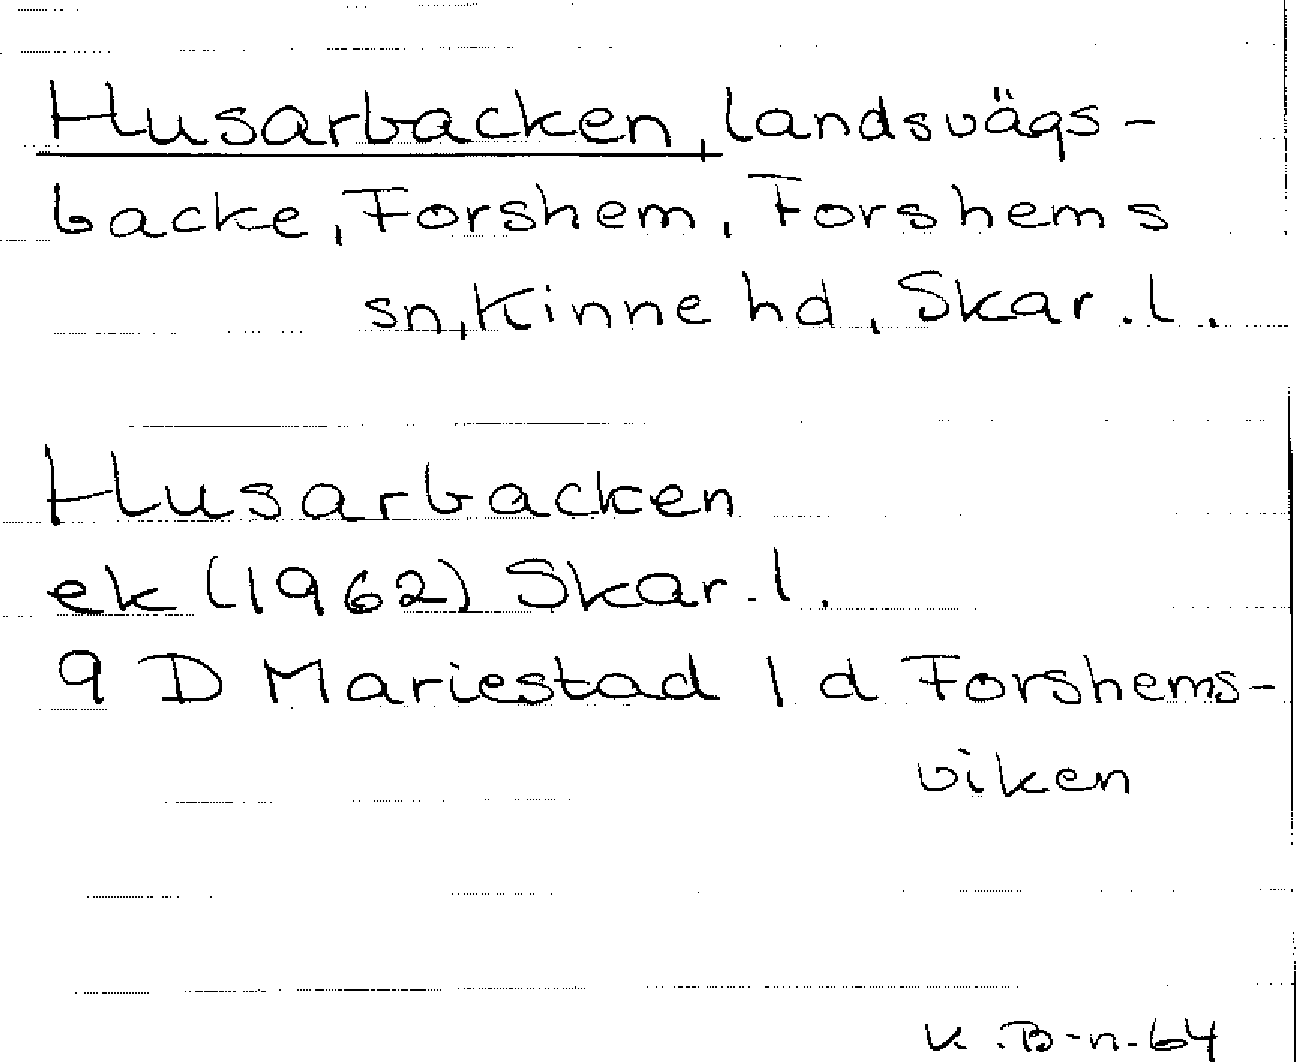 Husarbacken, landsvägs-
backe, Forshem, Forshems
sn, Kinne hd, Skar. l.
Husarbacken
ek (1962) Skar. l.
9 D Mariestad 1 d Forshems-
viken
K. B-n-64